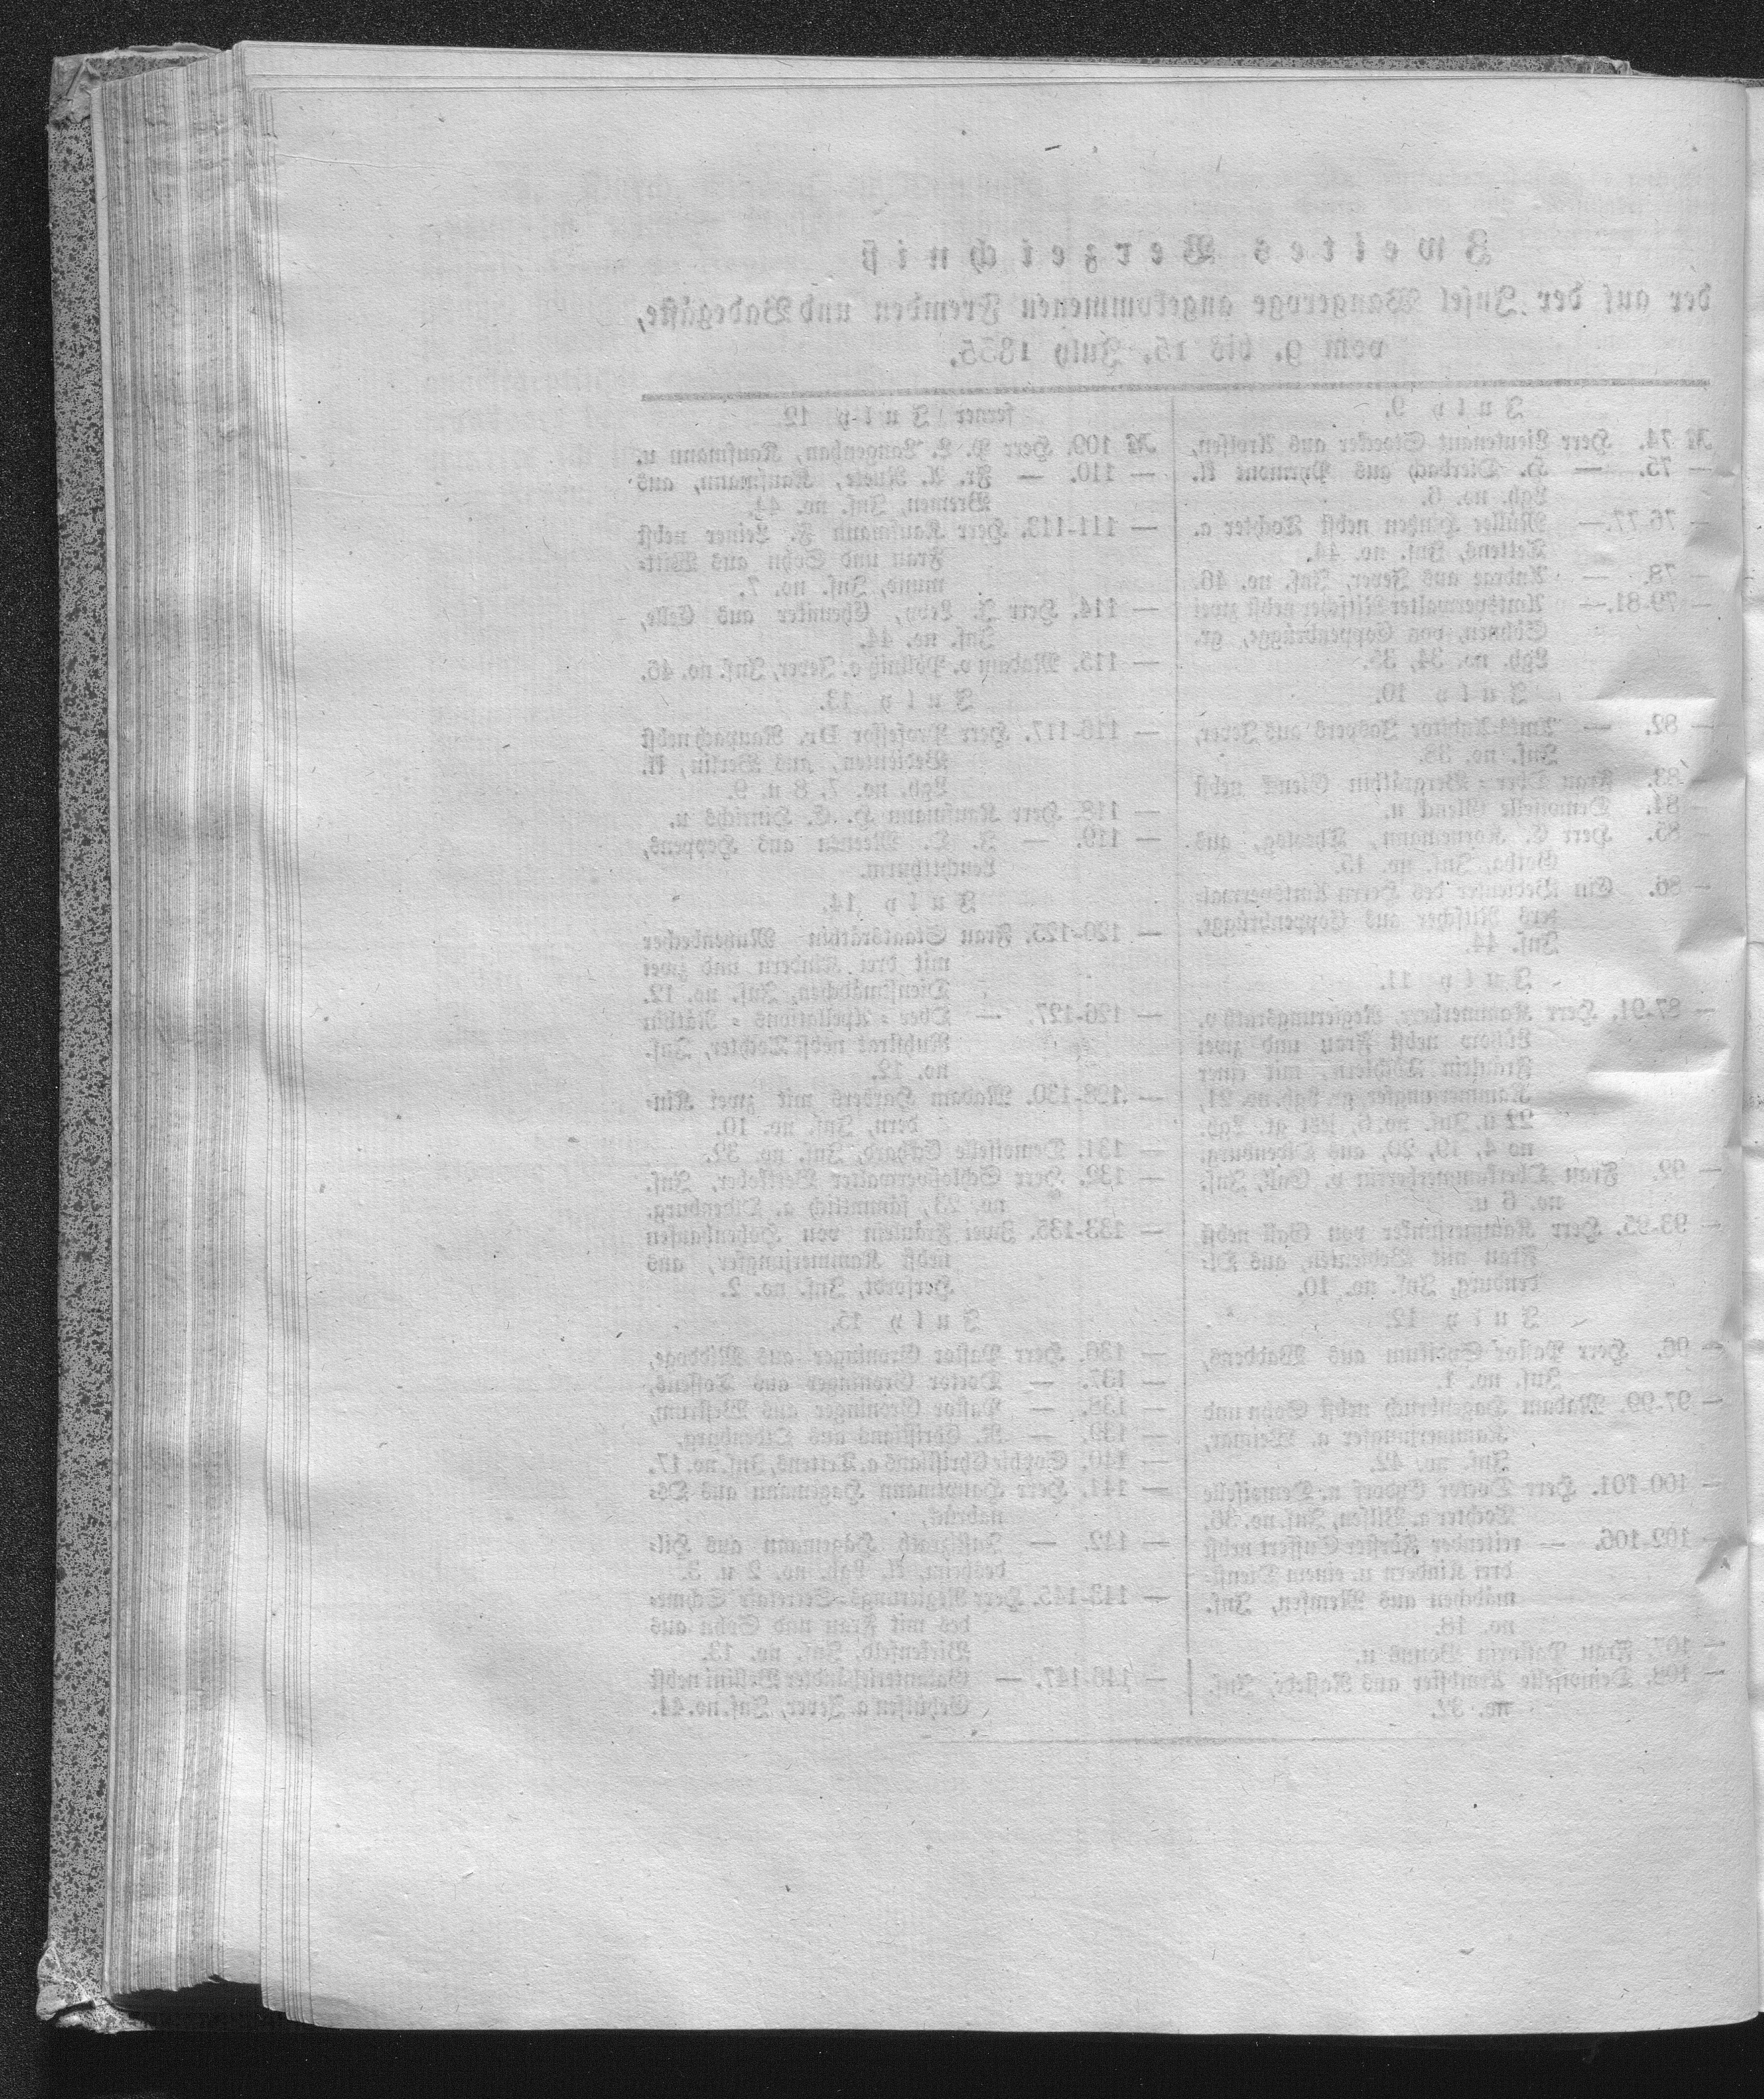 Zweites Verzeichniß
der auf der Insel Wangeroge angekommenen Fremden und Badegäste,
vom 9. bis 15. July 1835.
July 9.
№ 74. Herr Lieutenant Stoecker aus Arolsen,
— 75. — H. Dierbach aus Pyrmont kl.
Lgh. no. 6.
— 76-77.— Müller nebst Tochter a.
Tettens, Ins. no. 44.
— 78. — Andrae aus Jever, Ins. no. 46.
— 79-81.— Amtsverwalter Nitscher nebst zwei
Söhnen, von Coppenbrügge, gr.
Lgh. no. 34, 35.
July 10.
— 82. — Amts-Auditor aus Jever,
Ins. no. 38.
— 83. Frau Ober-Bergräthin nebst
— 84. Demoiselle u.
— 85. Herr C. Kornemann, aus
Gotha, Ins. no. 15.
— 86. Ein Bedienter des Herrn Amtsverwal-
ters Nitscher aus Coppenbrügge,
Ins. 44.
July 11.
— 87-91. Herr Kammerherr, Regierungsrath v.
Lützow nebst Frau und zwei
Fräulein Töchtern, mit einer
Kammerjungfer, gr. Lgh. no. 21,
22 u. Ins. no. 6, jetzt gr. Lgh.
no 4, 19, 20, aus Oldenburg.
— 92. Frau Oberkammerherrin v. Gall, Ins.
no. 6 u.
— 93-95. Herr Kammerjunker von Gall nebst
Frau mit Bedienten, aus Ol-
denburg, Ins. no. 10.
July 12.
— 96. Herr Pastor aus Waddens,
Ins. no. 1.
— 97-99. Madam nebst Sohn und
Kammerjungfer a. Weimar,
Ins. no. 42.
— 100-101. Herr Doctor u. Demoiselle
Tochter a. Ins. no. 36.
— 102-106. — reitender Förster nebst
drei Kindern u. einem Dienst-
mädchen aus Ins.
no. 18.
— 107. Frau Pastorin u.
— 108. Demoiselle aus Rastede, Ins.
no. 32.
ferner July 12.
№ 109. Herr P. L. Langenhan, Kaufmann u.
— 110. — Fr. A. Kaufmann, aus
Bremen, Ins. no. 44.
— 111-113. Herr Kaufmann F. Leiner nebst
Frau und Sohn aus Witt-
mund, Ins. no. 7.
— 114. Herr J. Levy, Chemiker aus Celle,
Ins. no. 44.
— 115. Madam v. a. Jever, Ins. no. 46.
July 13.
— 116-117. Herr Professor Dr. Raupach nebst
Bedienten, aus Berlin, kl.
Lgh. no. 7, 8 u. 9.
— 118. Herr Kaufmann H. C. Hinrichs u.
— 119. — J. C. aus Heppens,
Leuchtthurm.
July 14.
— 120-125. Frau Staatsräthin Mutzenbecher
mit drei Kindern und zwei
Dienstmädchen, Ins. no. 12.
— 126-127. — Ober-Apellations-Räthin
Ruhstrat nebst Tochter, Ins.
no. 12.
— 128-130. Madam Harbers mit zwei Kin-
dern, Ins. no. 10.
— 131. Demoiselle Ins. no. 32.
— 132. Herr Schloßverwalter Ins.
no. 23, sämmtlich a. Oldenburg.
— 133-135. Zwei Fräulein von Hohenhausen
nebst Kammerjungfer, aus
Herford, Ins. no. 2.
July 15.
— 136. Herr Pastor Gröninger aus Middoge,
— 137. — Doctor Gröninger aus Tossens,
— 138. — Pastor Gröninger aus Westrum,
— 139. — K. Christians aus Oldenburg,
— 140. Sophie Christians a. Tettens, Ins. no. 17.
— 141. Herr Hauptmann Hagemann aus Os-
nabrück,
— 142. — Justizrath Hagemann aus Hil-
desheim, kl. Lgh. no. 2 u. 3.
— 143-145. Herr Regierungs-Secretair Schme-
des mit Frau und Sohn aus
Birkenfeld, Ins. no. 13.
— 146-147. — nebst
Gehülfen a. Jever, Ins. no. 44.